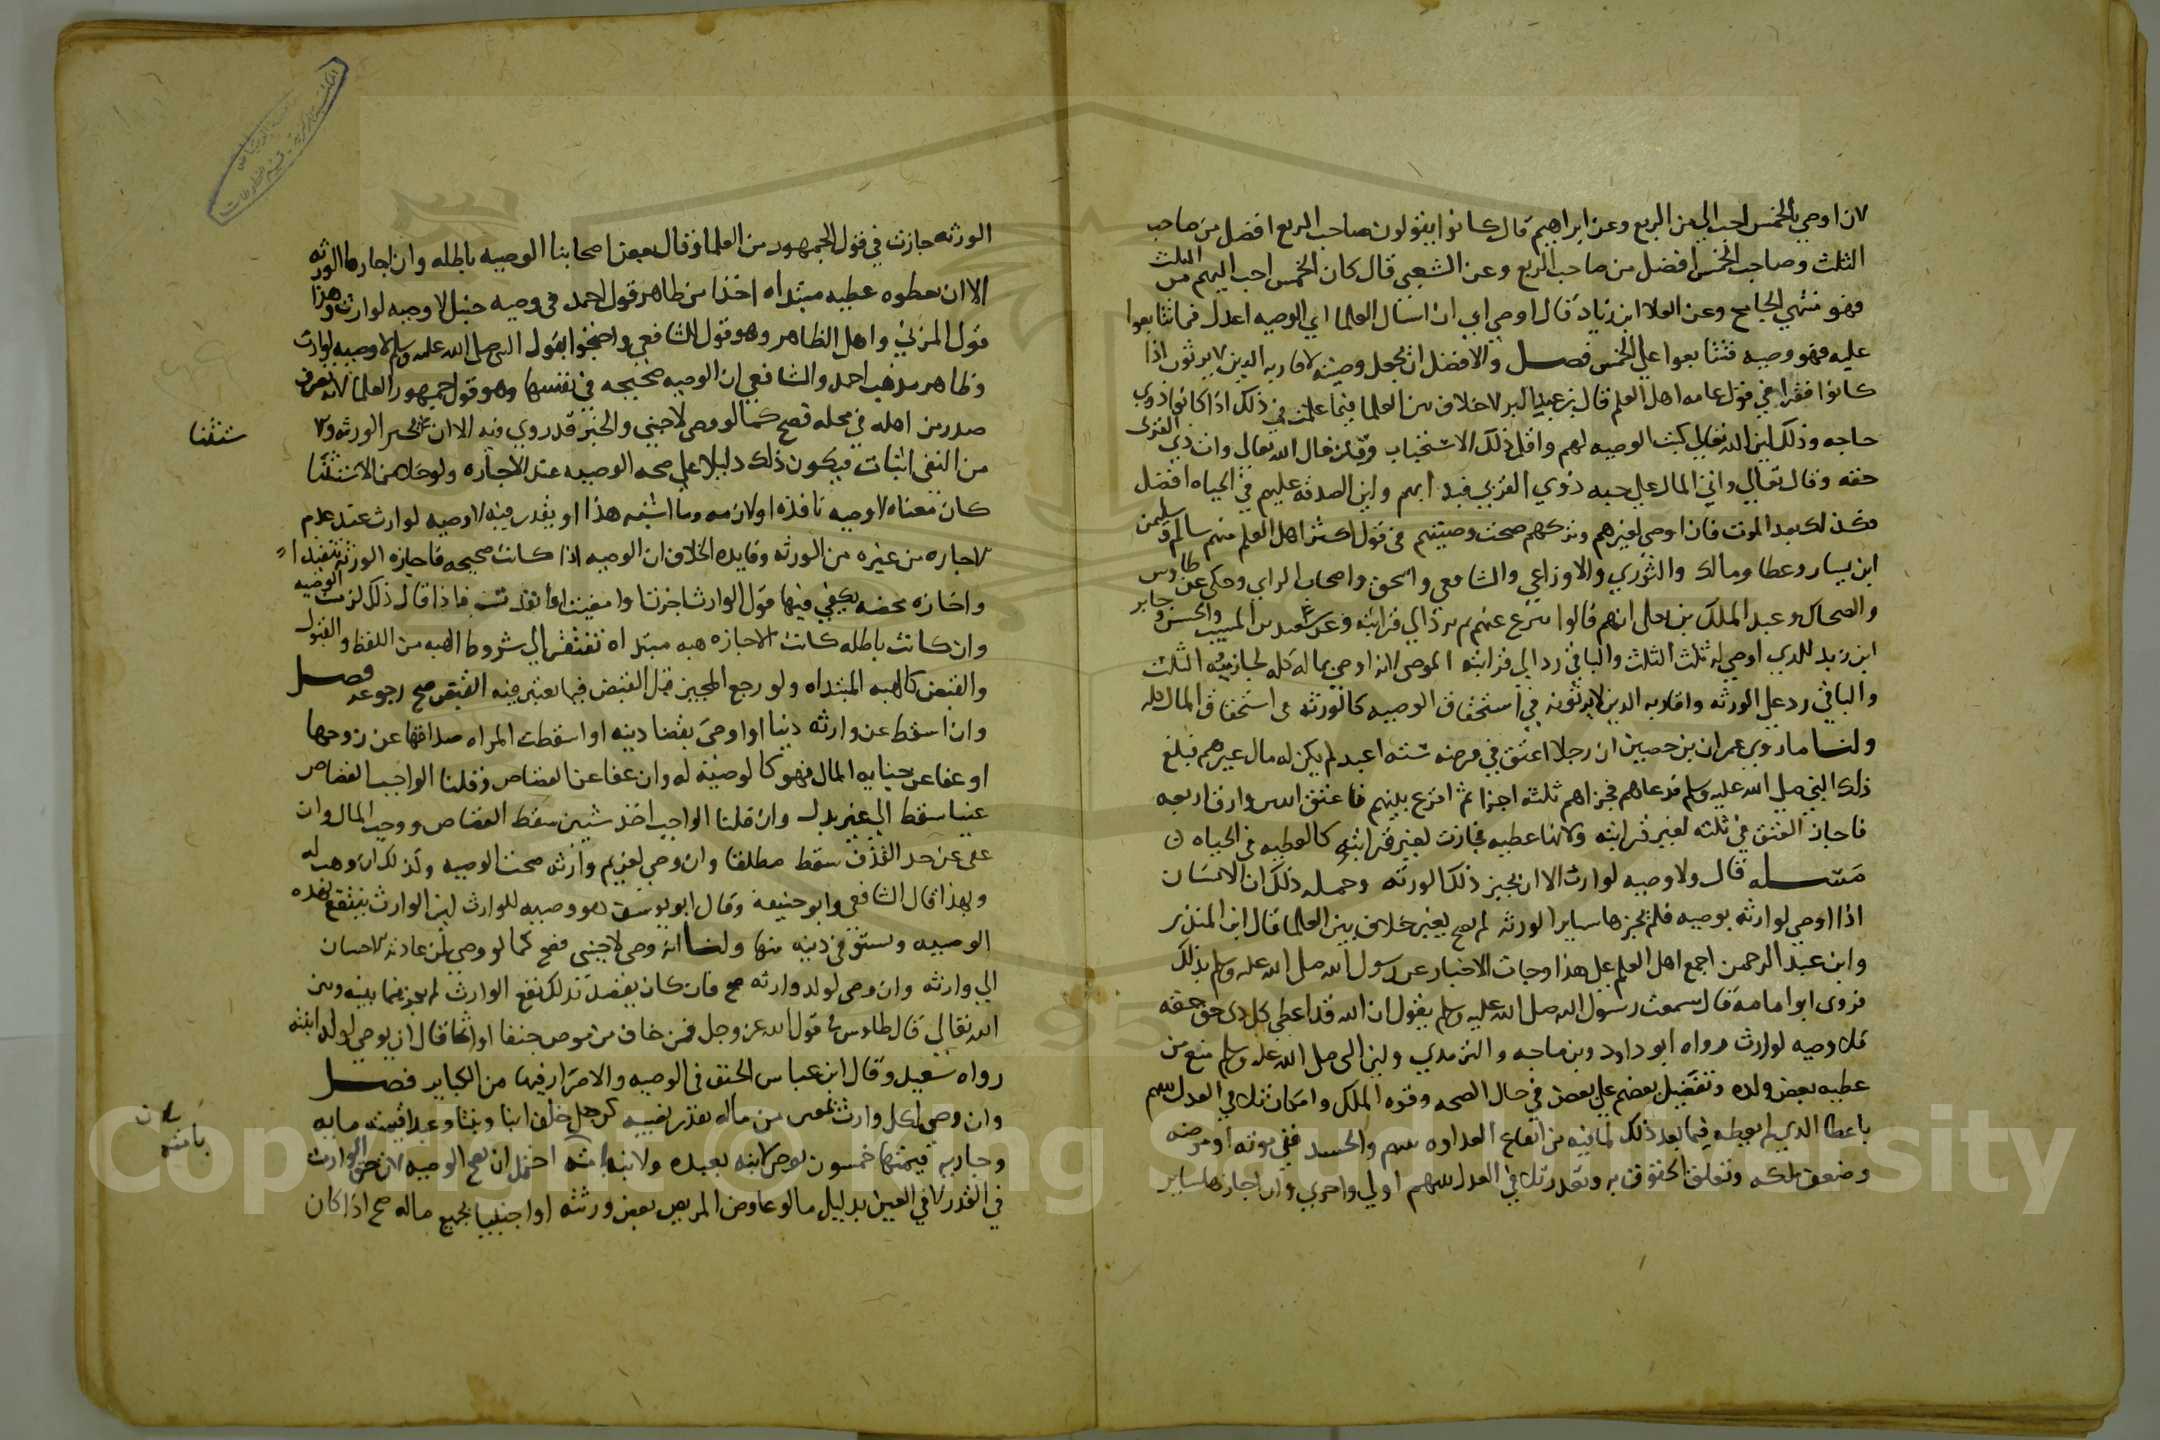 لان اوصي بالخمس احب الي من الربع وعن ابراهيم قال كانوا يقولون صاحب الربع افضل من صاحب
الثلث وصاحب الخمس افضل من صاحب الربع وعن الشعبي قال كان الخمس احب اليهم من الثلث
فهو منتهي الجامح وعن العلا ابن زياد قال اوصي ابي ان اسال العلما اي الوصيه اعدل فما تتابعوا
عليه فهو وصيه فتتابعوا علي الخمس فصل والافضل ان يجعل وصيته لاقاربه الدين لا يرثون اذا
كانوا فقرا في قول عامه اهل العلم قال بن عبد البر لا خلاف بين العلما فيما علمت في ذلك اذا كانوا ذوي
حاجه وذلك لان الله تعالي كتب الوصيه لهم واقل ذلك الاستحباب وقد قال الله تعالي وات ذي القربى
حقه وقال تعالي واتي المال علي حبه ذوي القربي فبدا بهم ولان الصدقه عليهم في الحياه افضل
فكذلك بعد الموت فان اوصي لغيرهم وتركهم صحت وصيته في قول اكثر اهل العلم منهم سالم وسليمن
ابن يسار وعطا ومالك والثوري والاوزاعي والشافعي واسحق واصحاب الراي وحكي عن طاوس
والضحاك وعبد الملك بن يعلي انهم قالوا ينزع عنهم ثم يرد الي قرابته وعن سعيد بن المسيب والحسن وجابر
ابن زيد للدي اوصي له ثلث الثلث والباقي رد الي قرابته الموصي لانه اوصي بماله كله لجاز منه الثلث
والباقي رد علي الورثه واقاربه الدين لا يرثونه في استحقاق الوصيه كالورثه في استحقاق المال كله
ولنا ما روي عمران بن حصين ان رجلا اعتق في مرضه سته اعبد لم يكن له مال غيرهم فبلغ
ذلك النبي صلي الله عليه وسلم فدعاهم فجزاهم ثلثه اجزا ثم اقرع بينهم فاعتق اثنين وارق اربعه
فاجاز العتق في ثلثه لغير قرابته ولانها عطيه فجازت لغير قرابته كالعطيه في الحياه ن
مسله قال ولا وصيه لوارث الا ان يجيز ذلك الورثه وجمله ذلك ان الانسان
اذا اوصي لوارثه بوصيه فلم يجزها ساير الورثه لم تصح بغير خلاف بين العلما قال ابن المنذر
وابن عبد الرحمن اجمع اهل العلم علي هذا وجات الاخبار عن رسول الله صلي الله عليه وسلم بذلك
فروي ابوا مامه قال سمعت رسول الله صلي الله عليه وسلم يقول ان الله قد اعطي كل ذي حق حقه
فلا وصيه لوارث رواه ابو داود وبن ماجه والترمدي ولان النبي صلي الله عليه وسلم منع من
عطيه بعض ولده وتفضيل بعضهم علي بعض في حال الصحه وقوه الملك وامكان تلافي العدل بينهم
باعطا الذي لم يعطه فيما بعد ذلك لما فيه من ايقاع العداوه بينهم والحسد ففي موته او مرضه
وضعف ملكه وتعلق الحقوق به وتعدر تلافي العدل بينهم اولي واحري وان اجازها ساير
الورثه جازت في قول الجمهور من العلما وقال بعض اصحابنا الوصيه باطله وان اجازها الورثه
الا ان يعطوه عطيه مبتداه اخذا من ظاهر قول احمد في وصيه حنبل لا وصيه لوارث وهذا
قول المزني واهل الظاهر وهو قول الشافعي واحتجوا بقول النبي صلي الله عليه وسلم لا وصيه لوارث
وظاهر مذهب احمد والشافعي ان الوصيه صحيحه في نفسها وهو قول جمهور العلما لانه تصرف
صدر من اهله في محله فصح كما لو وصي لاجنبي والخبر قد روي فيه الا ان يجيز الورثه ولا
من النفي اثبات فيكون ذلك دليلا علي صحه الوصيه عند الاجازه ولو خلا من الاستثنا
كان معناه لا وصيه نافذه او لازمه وما اشبه هذا او يقدر فيه لا وصيه لوارث عند عدم
الاجازه من غيره من الورثه وفايده الخلاف ان الوصيه اذا كانت صحيحه فاجازه الورثه تنفيدا
واجازه محضه يكفي فيها قول الوارث اجزت او امضيت او انفدت فاذا قال ذلك لزمت الوصيه
وان كانت باطله كانت الاجازه هبه مبتداه تفتقر الي شروط الهبه من اللفظ والقبول
والقبض كالهبه المبتداه ولو رجع المجيز قبل القبض فيما يعتبر فيه القبض صح رجوعه فصل
وان اسقط عن وارثه دينا او اوصي بقضا دينه او اسقطت المراه صداقها عن زوجها
او عفا عن جنايه المال فهو كالوصيه له وان عفا عن القصاص وقلنا الواجب القصاص
عينا سقط الي غير بدل وان قلنا الواجب احد شيين سقط القصاص ووجب المال وان
عفي عن حد القذف سقط مطلقا وان وصي لغريم وارثه صحت الوصيه وكذلك ان وهب له
وبهذا قال الشافعي وابو حنيفه وقال ابو يوسف هو وصيه للوارث لان الوارث ينتفع بهذه
الوصيه ويستوفي دينه منها ولنا انه وصي لاجنبي فصح كما لو وصي لمن عادته الاحسان
الي وارثه وان وصي لولد وارثه صح فان كان يقصد بذلك نفع الوارث لم يجز فيما بينه وبين
الله تعالي قال طاوس في قول الله عز وجل فمن خاف من موص جنفا او اثما قال ان يوصي لولد ابنته
رواه سعيد وقال ابن عباس الحنق في الوصيه والاضرار فيها من الكباير فصل
وان وصي لكل وارث بمعين من ماله بقدر نصيبه كرجل خلف ابنا وبنتا وعبدا قيمته مايه
وجاريه قيمتها خمسون فوصي لابنه بعبده ولابنته بامته احتمل ان تصح الوصيه لان حق الوارث
في القدر لا في العين بدليل ما لو عاوض المريض بعض ورثته او اجنبيا بجميع ماله صح اذا كان
ستثنا
بامته
Copyright © King Saud University